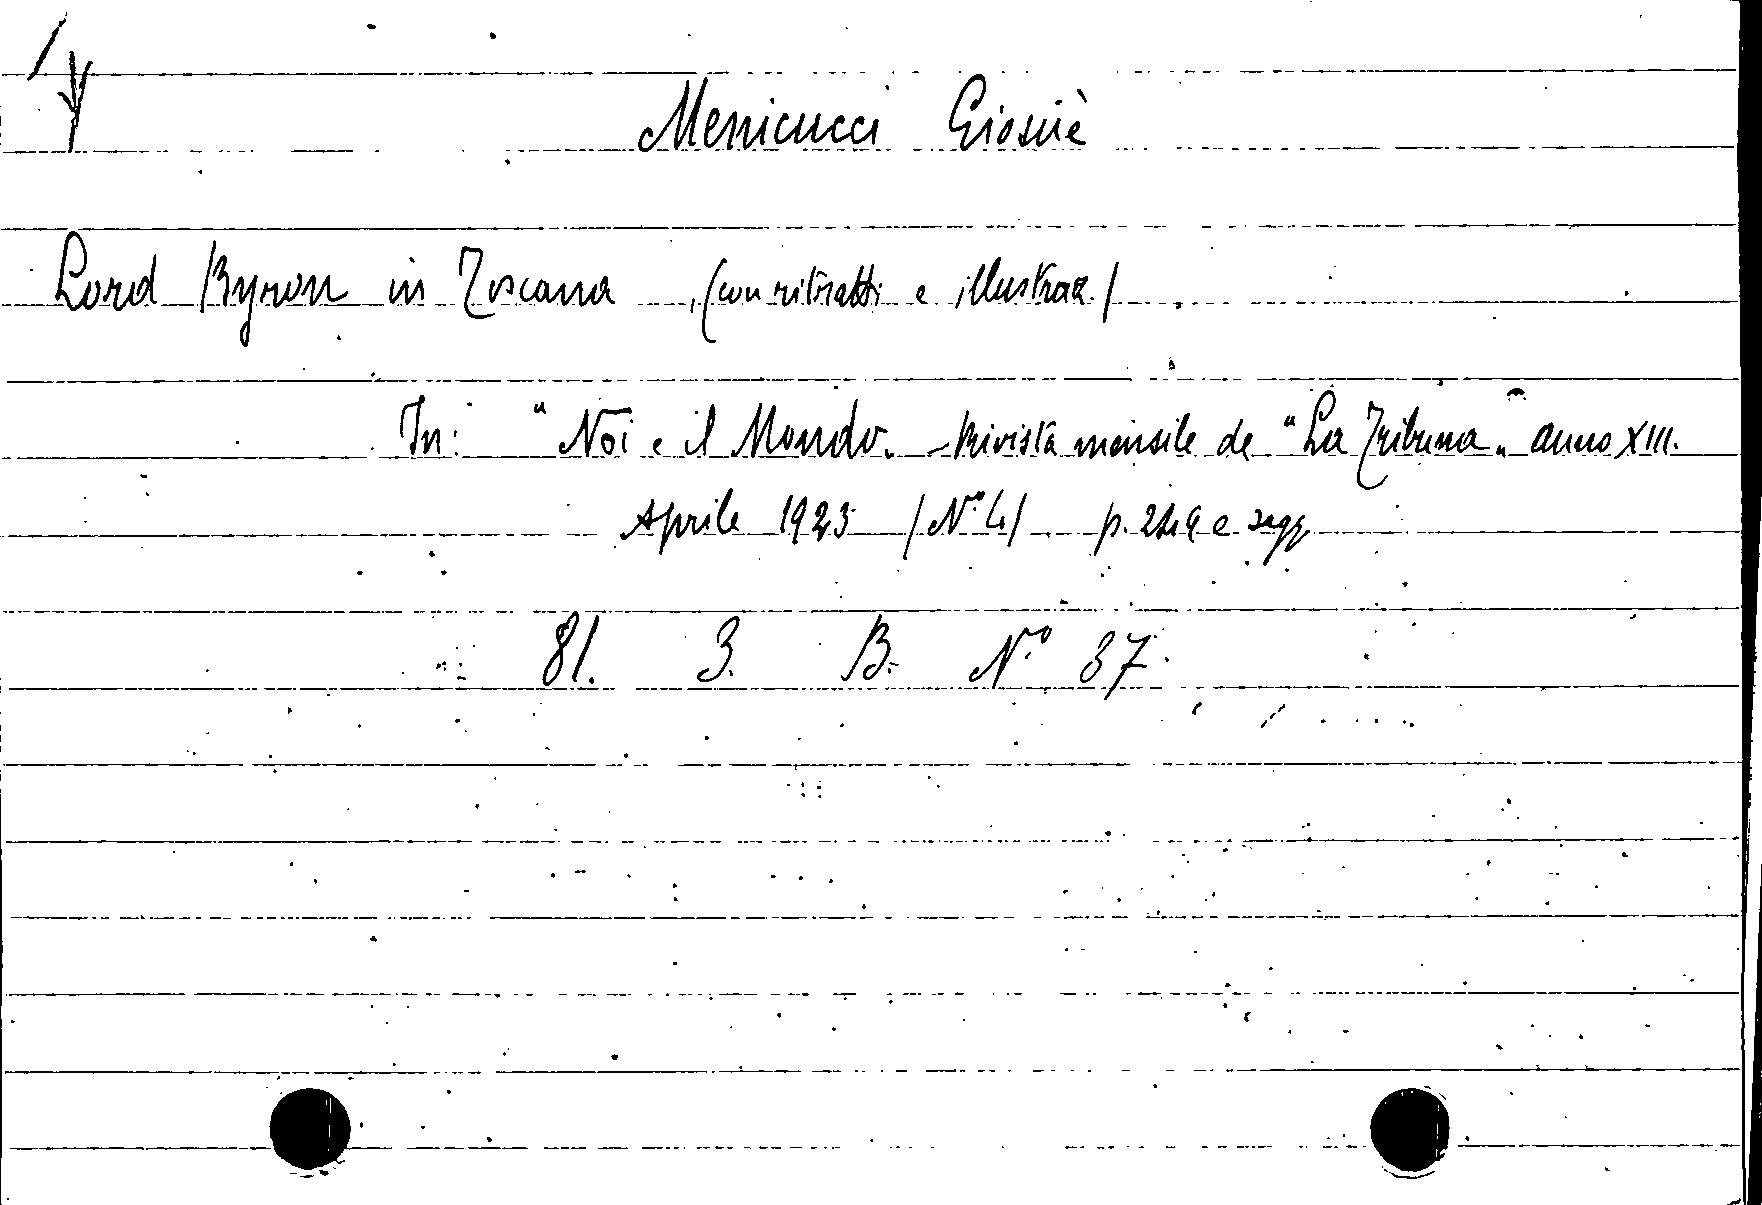 Menicucci Giosuè
Lord Byron in Toscana, (con ritratti e illustraz.)
In: "Noi e il Mondo. - Rivista mensile de "La Tribuna" anno XIII.
Aprile 1923 (N.º 4) p. 249 e segg
81. 3. B. N.º 37.